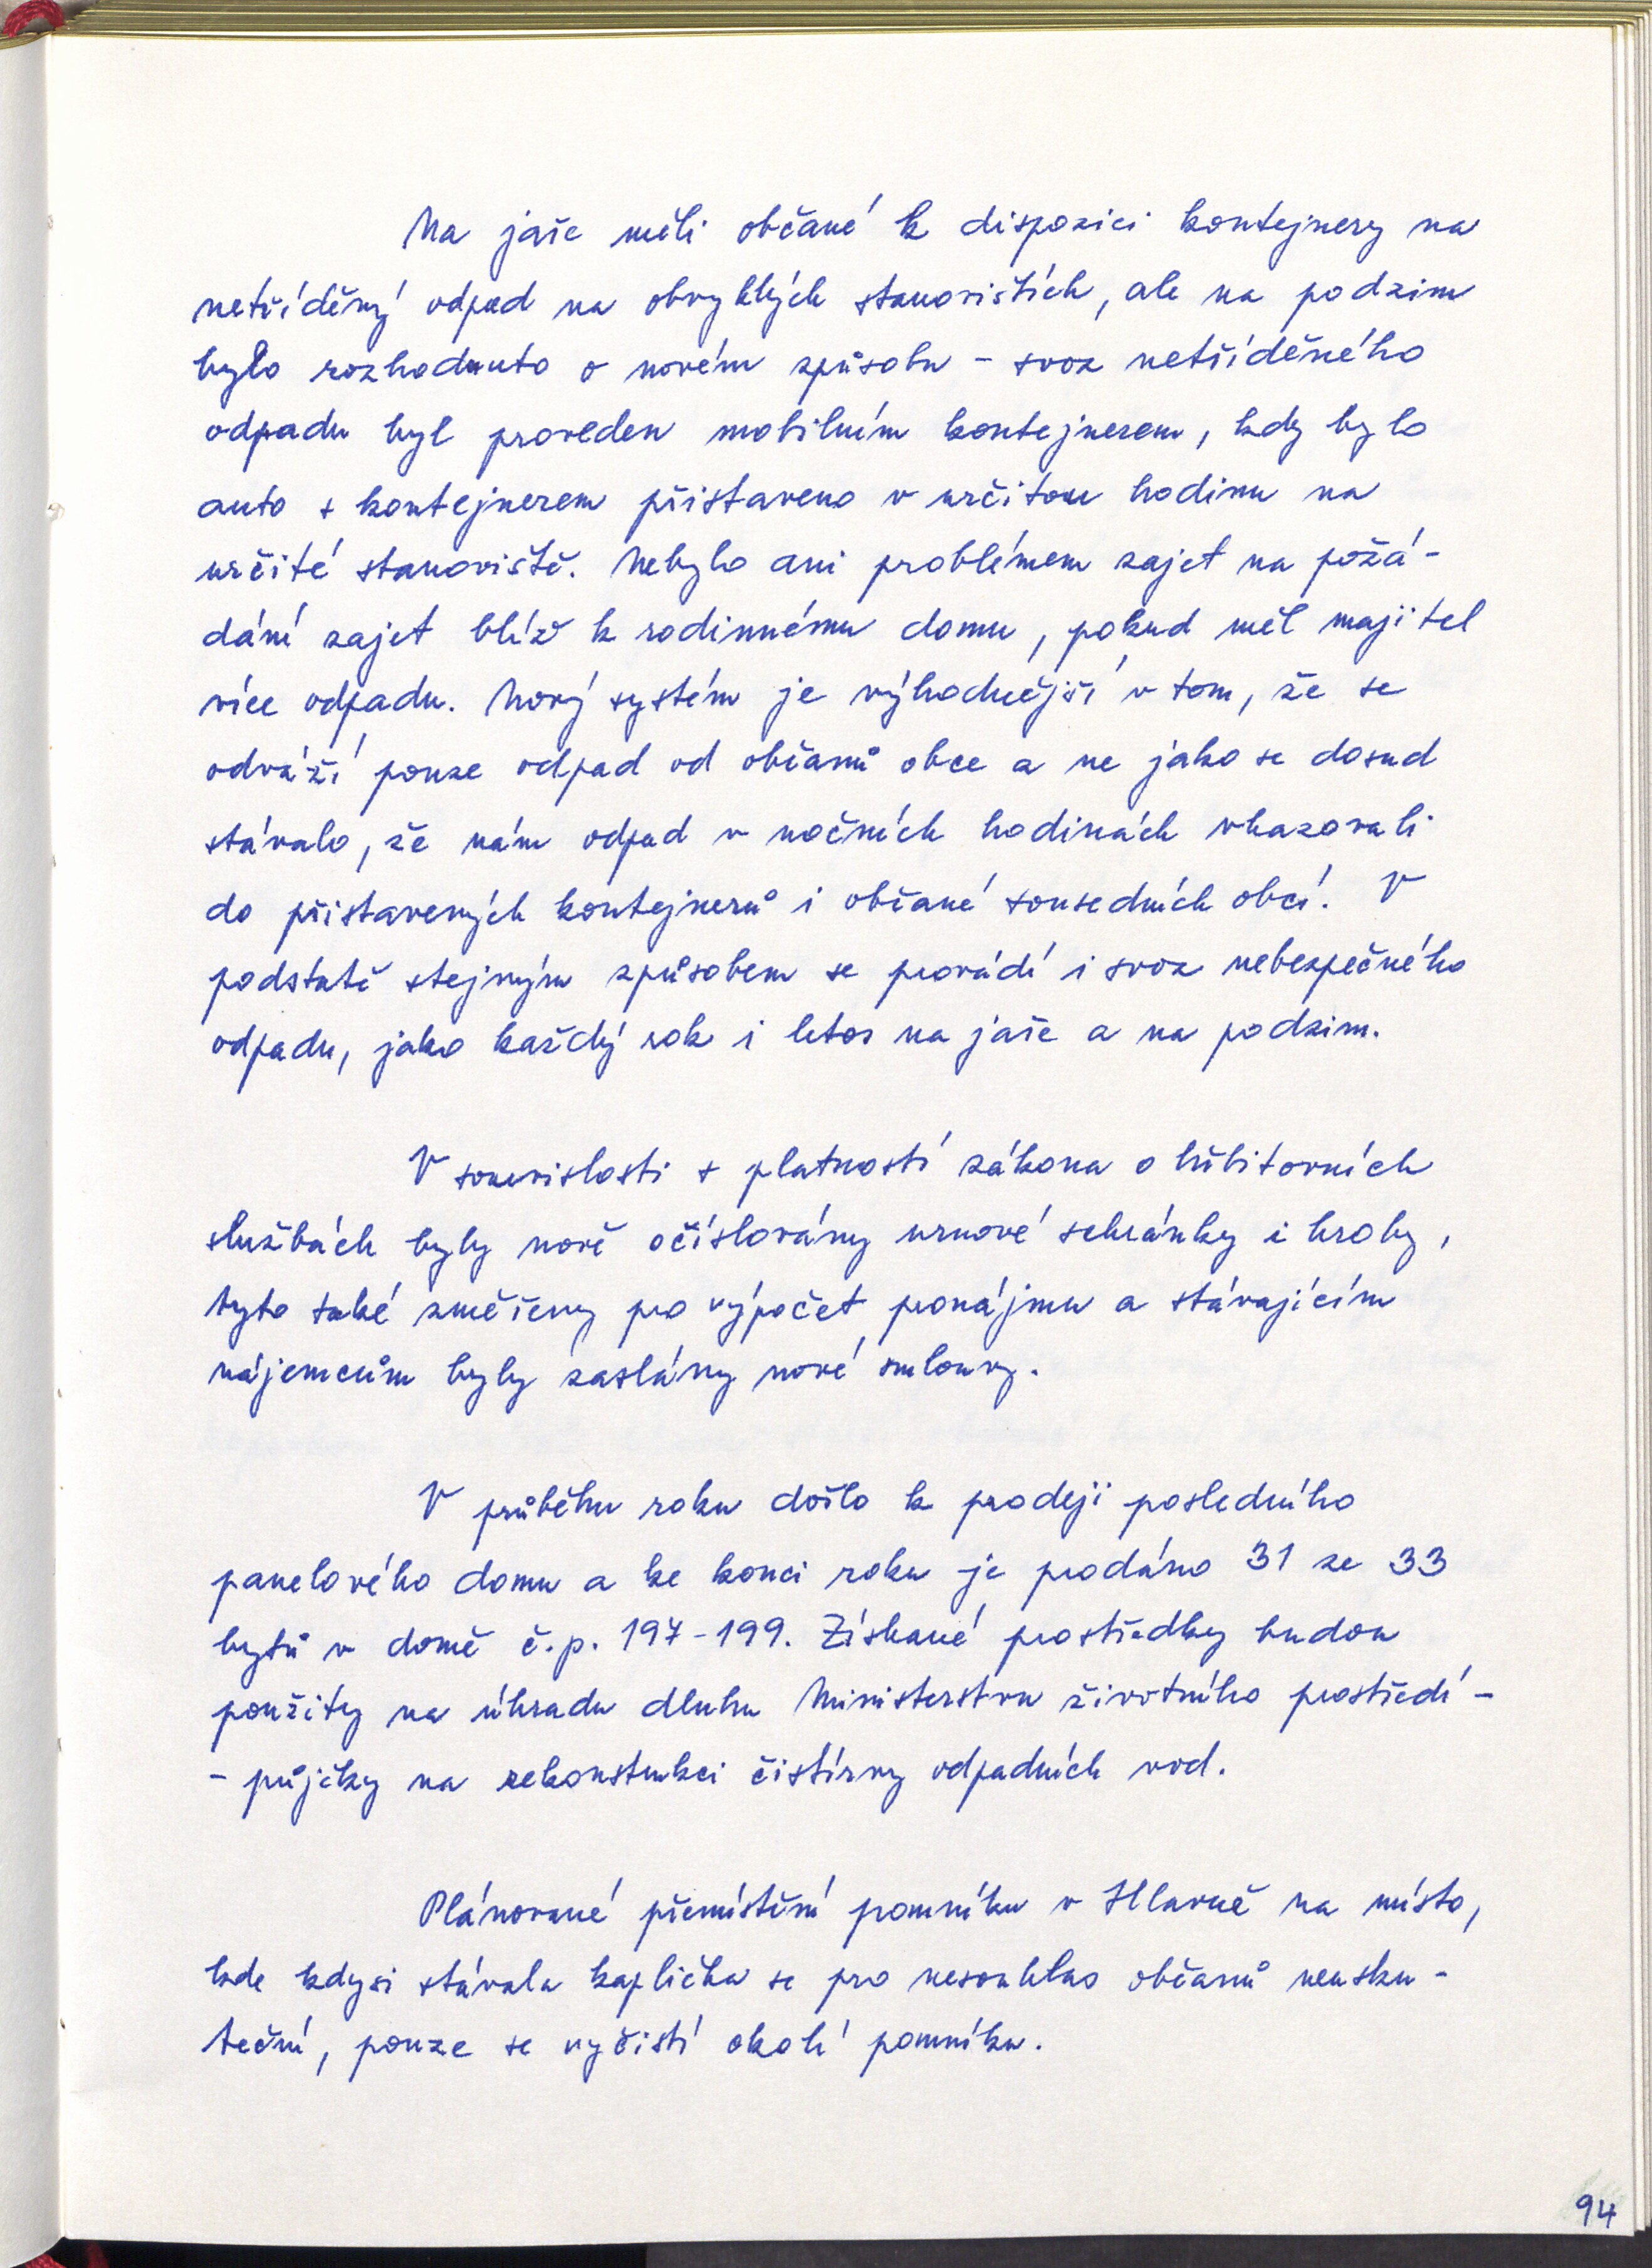 Na jaře měli občané k dispozici kontejnery na
netříděný odpad na obvyklých stanovištích, ale na podzim
bylo rozhodnuto o novém způsobu - svoz netříděného
odpadu byl proveden mobilním kontejnerem, kdy bylo
auto s kontejnerem přistaveno v určitou hodinu na
určité stanoviště. Nebylo ani problémem zajet na požá-
dání zajet blíž k rodinnému domu, pokud měl majitel
více odpadu. Nový systém je výhodnější v tom, že se
odváží pouze odpad od občanů obce a ne jako se dosud
stávalo, že nám odpad v nočních hodinách vhazovali
do přistavených kontejnerů i občané sousedních obcí. V
podstatě stejným způsobem se provádí i svoz nebezpečného
odpadu, jako každý rok i letos na jaře a na podzim.
V souvislosti s platností zákona o hřbitovních
službách byly nově očíslovány urnové schránky i hroby,
tyto také změřeny pro výpočet pronájmu a stávajícím
nájemcům byly zaslány nové smlouvy.
V průběhu roku došlo k prodeji posledního
panelového domu a ke konci roku je prodáno 31 ze 33
bytů v domě č.p. 197-199. Získané prostředky budou
použity na úhradu dluhu Ministerstvu životního prostředí -
- půjčky na rekonstrukci čistírny odpadních vod.
Plánované přemístění pomníku v Hlavně na místo,
kde kdysi stávala kaplička se pro nesouhlas občanů neusku-
teční, pouze se vyčistí okolí pomníku.
94